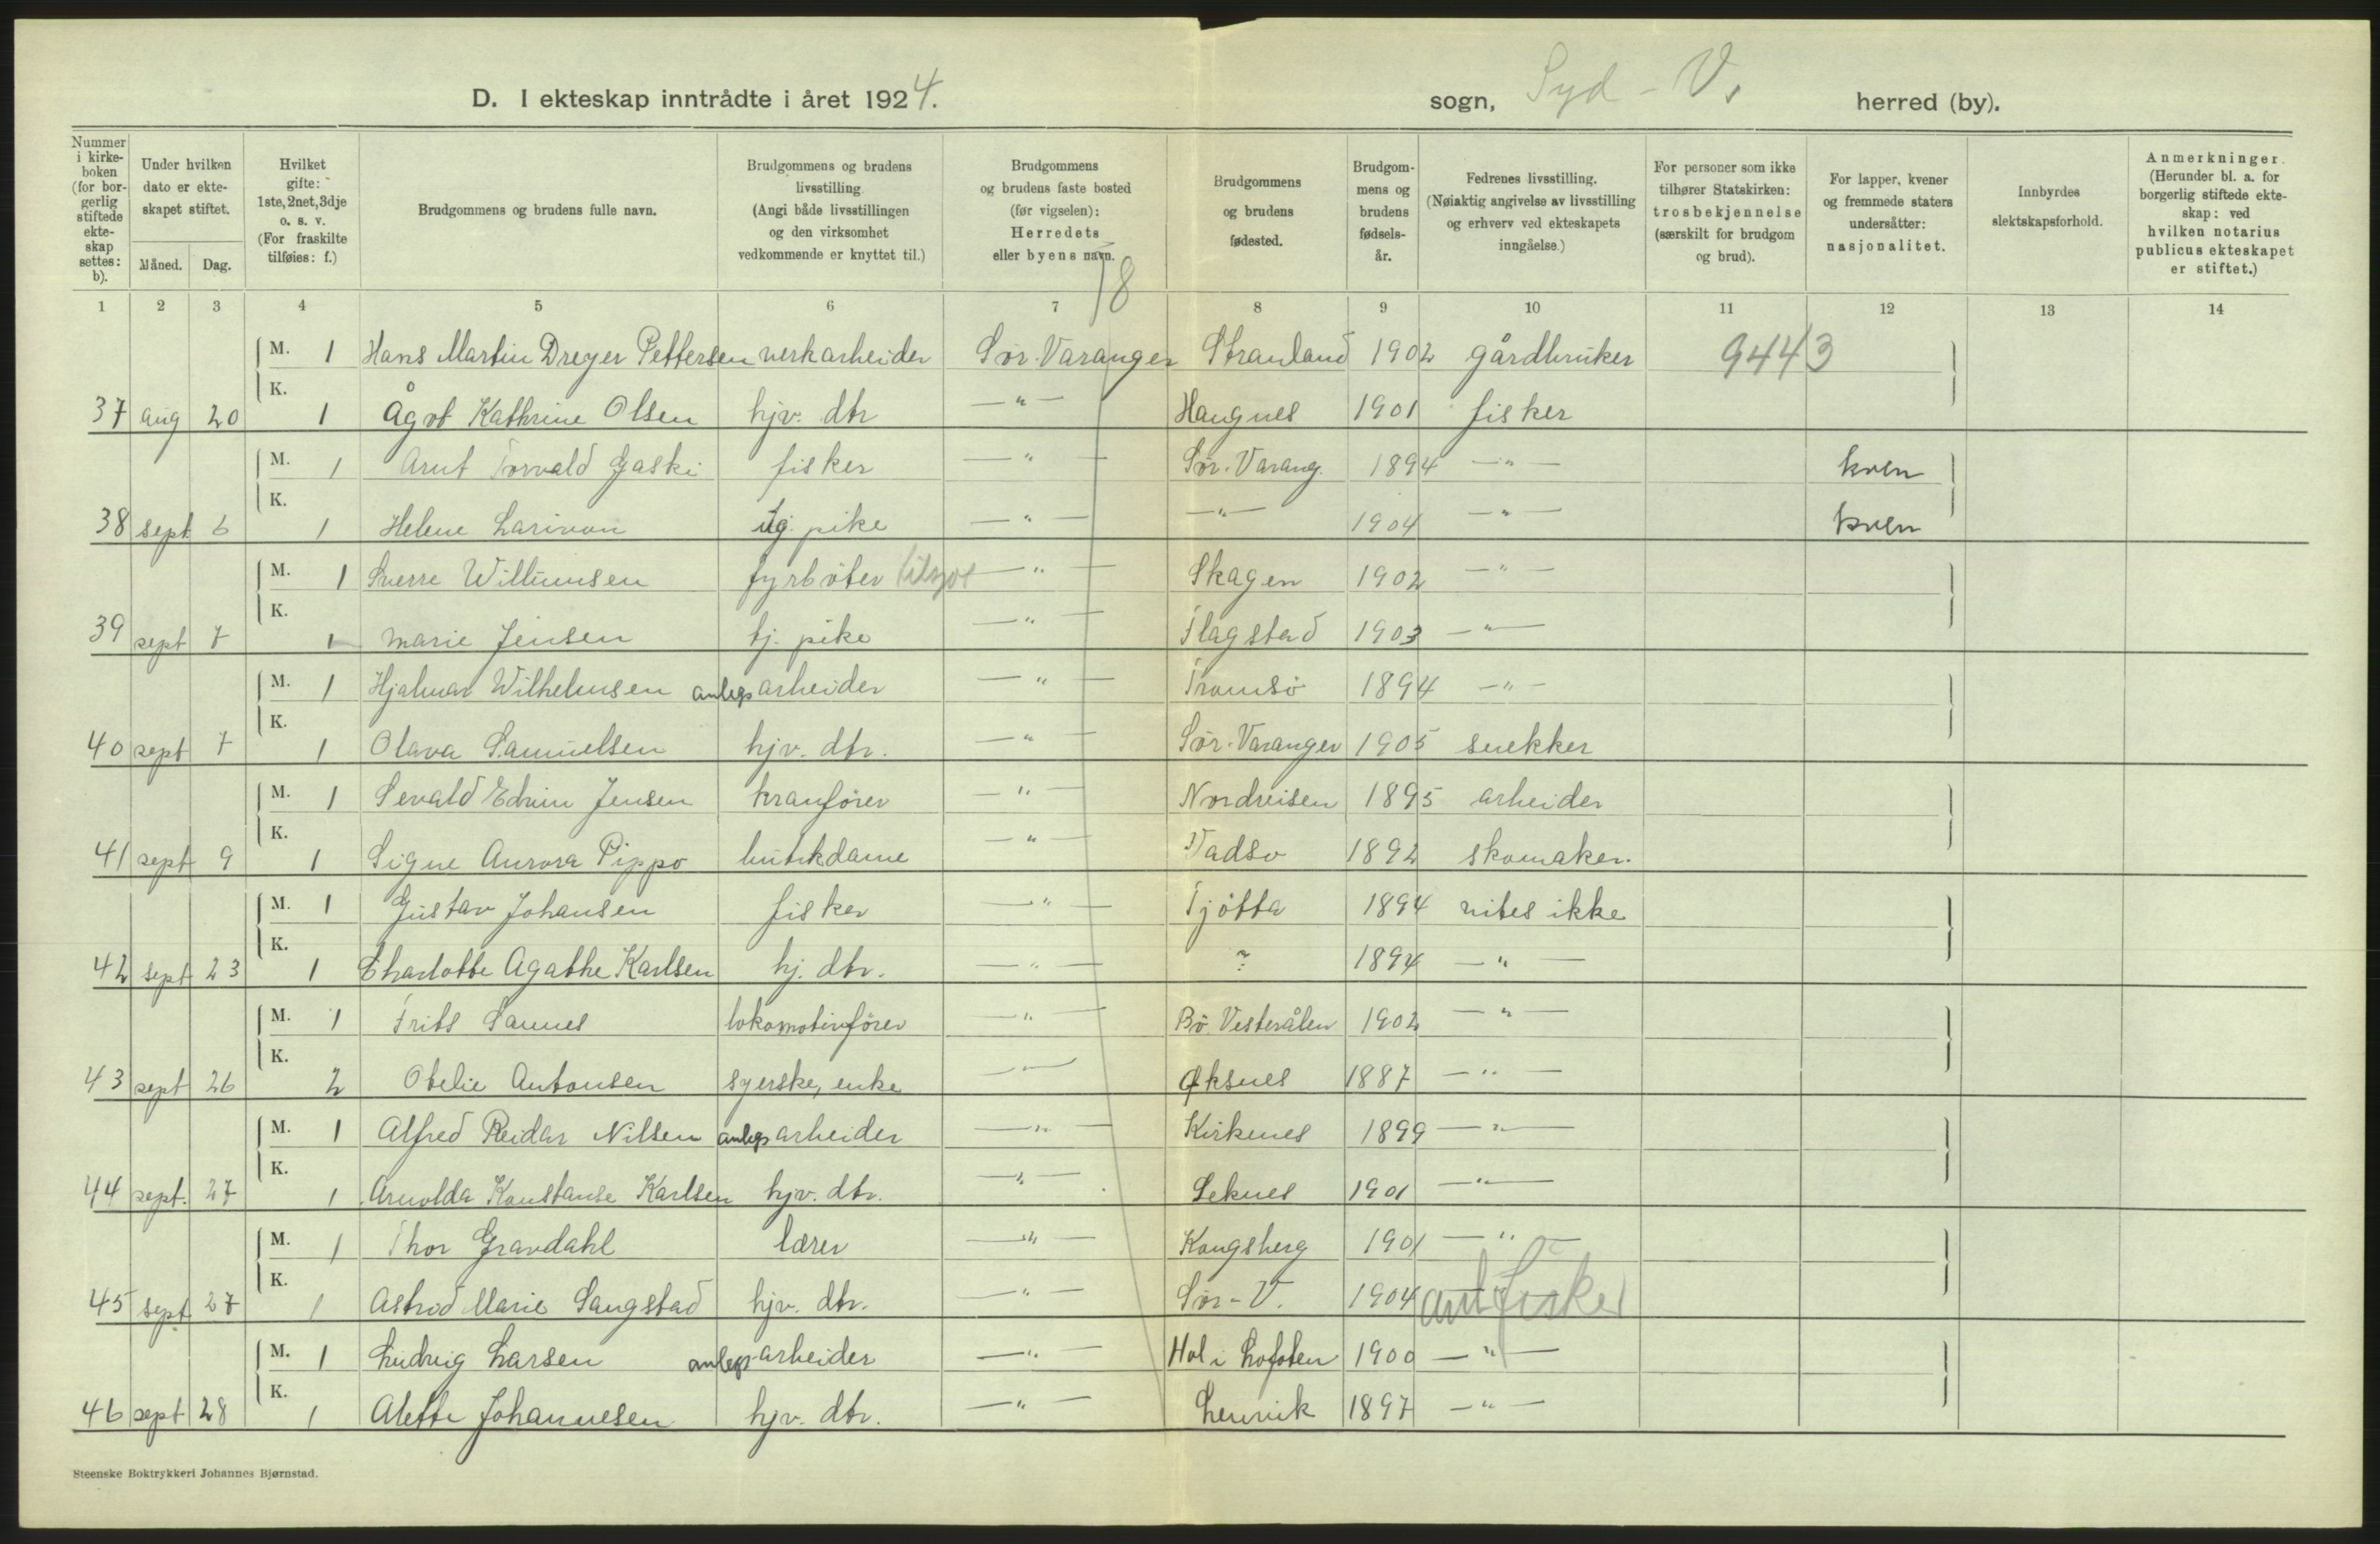 D. I ekteskap inntrådte i året 1924.
sogn, Syd - V. herred (by).
Nummer i kirkeboken (for borgerlig stiftede ekteskap settes: b).
Under hvilken dato er ekteskapet stiftet.
Måned. Dag.
Hvilket gifte: 1ste, 2net, 3dje o. s. v. (For fraskilte tilføies: f.)
Brudgommens og brudens fulle navn.
Brudgommens og brudens livsstilling (Angi både livsstillingen og den virksomhet vedkommende er knyttet til.)
Brudgommens og brudens faste bosted (før vigselen): Herredets eller byens navn.
Brudgommens og brudens fødested.
Brudgommens og brudens fødselsår.
Fedrenes livsstilling. (Nøiaktig angivelse av livsstilling og erhverv ved ekteskapets inngåelse.)
For personer som ikke tilhører Statskirken: trosbekjennelse (særskilt for brudgom og brud).
For lapper, kvener og fremmede staters undersåtter: nasjonalitet.
Innbyrdes slektskapsforhold.
Anmerkninger. (Herunder bl. a. for borgerlig stiftede ekteskap: ved hvilken notarius publicus ekteskapet er stiftet.)
1 2 3 4 5 6 7 8 9 10 11 12 13 14
M. 1 Hans Martin Dreyer Pettersen verkarbeider Sør-Varanger Stranland 1902 gårdbruker 9443
37 aug 20 K. 1 Ågot Kathrine Olsen hjv. dtr — " — Haugnes 1901 fisker
M. 1 Arnt Torvald Gaski fisker — " — Sør-Varang. 1894 — " — kven
38 sept 6 K. 1 Helene Larivon ug. pike — " — — " — 1904 — " — kven
M. 1 Sverre Willumsen fyrbøter tilsjøs — " — Skagen 1902 — " —
39 sept 7 K. 1 Marie Jensen tj. pike — " — Flagstad 1903 — " —
M. 1 Hjalmar Wilhelmsen anlegsarbeider — " — Tromsø 1894 — " —
40 sept 7 K. 1 Olava Samuelsen hjv. dtr. — " — Sør-Varanger 1905 snekker
M. 1 Sevald Edvin Jensen kranfører — " — Nordreisen 1895 arbeider
41 sept 9 K. 1 Signe Aurora Pippo butikdame — " — Vadsø 1892 skomaker.
M. 1 Gustav Johansen fisker — " — Tjøtta 1894 vites ikke
42 sept 23 K. 1 Charlotte Agathe Karlsen hj. dtr. — " — ? 1894 — " —
M. 1 Frits Sannes lokomotivfører — " — Bø. Vesterålen 1902 — " —
43 sept 26 K. 2 Otelie Antonsen syerske, enke — " — Øksnes 1887 — " —
M. 1 Alfred Reidar Nilsen anlegsarbeider — " — Kirkenes 1899 — " —
44 sept. 27 K. 1 Arnolda Konstanse Karlsen hjv. dtr. — " — Leknes 1901 — " —
M. 1 Thor Gravdahl lærer — " — Kongsberg 1901 — " —
45 sept 27 K. 1 Astrid Marie Sangstad hjv. dtr. — " — Sør-V. 1904 ant fisker
M. 1 Ludvig Larsen anlegsarbeider — " — Hol i Lofoten 1900 — " —
46 sept 28 K. 1 Alette Johannesen hjv. dtr. — " — Lenvik 1897 — " —
Steenske Boktrykkeri Johannes Bjørnstad.